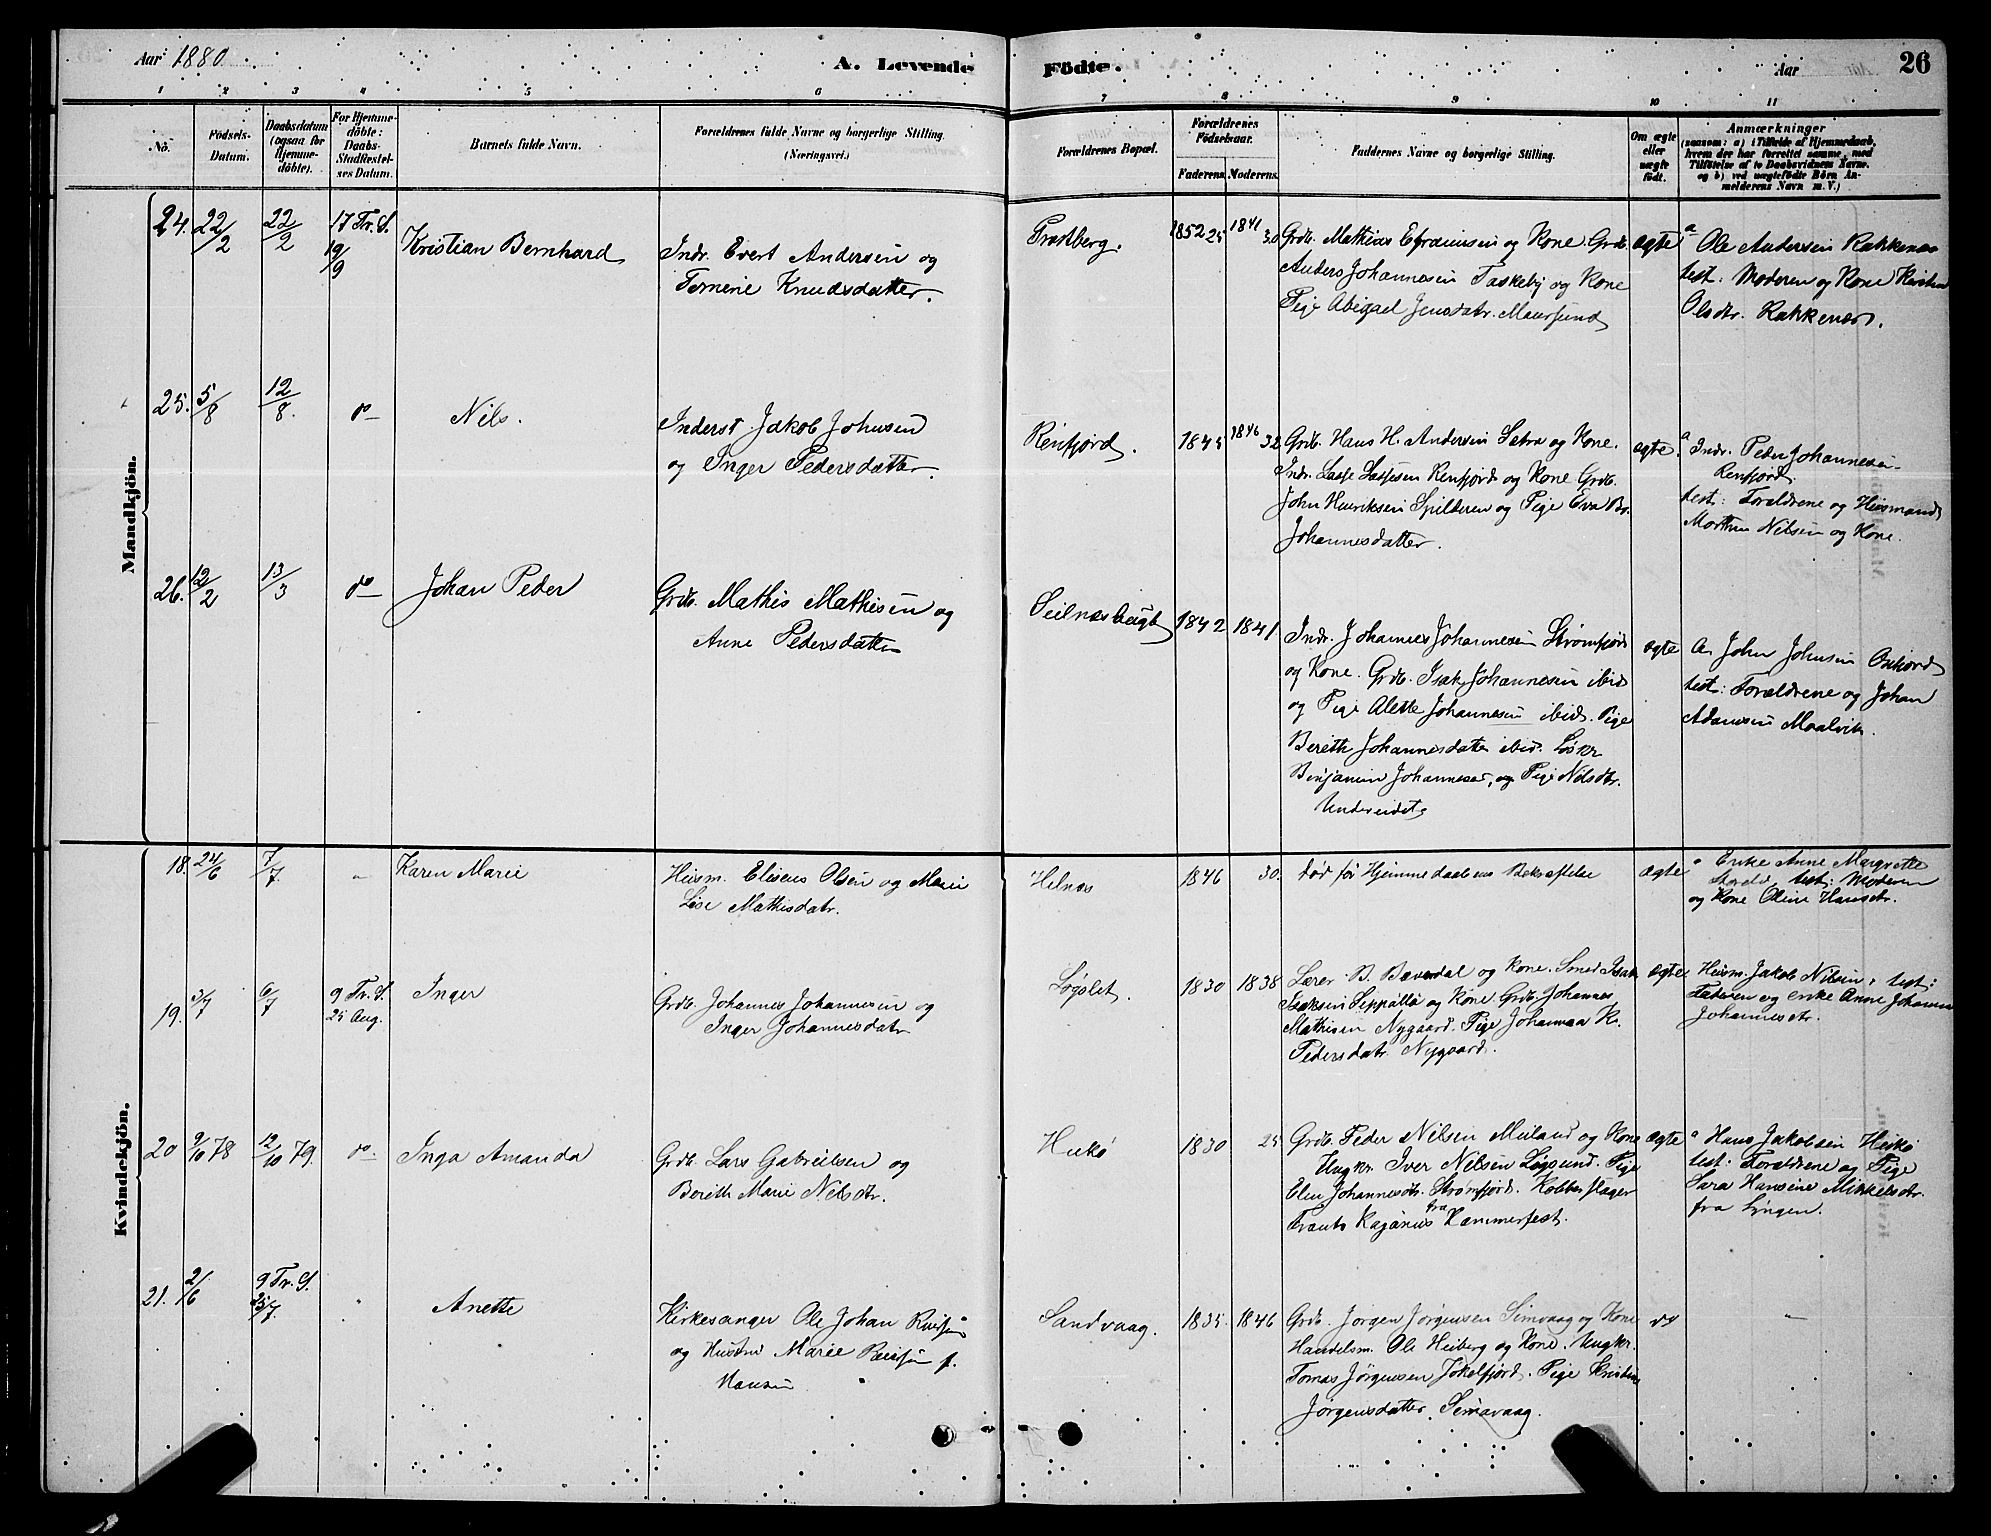 Aar 1880.
A. Levende Födte.
Aar
26
1 2 3 4 5 6 7 8 9 10 11
No.
Födsels-
Datum.
Daabsdatum
(ogsaa for
Hjemme-
döbte).
For Hjemme-
döbte:
Daabs-
Stadfæstel-
ses Datum.
Barnets fulde Navn.
Forældrenes fulde Navne og borgerlige Stilling.
(Næringsvei.)
Forældrenes Bopæl.
Forældrenes
Födselsaar.
Faderens. Moderens.
Faddernes Navne og borgerlige Stilling.
Om ægte
eller
uægte
födt.
Anmærkninger
(saasom: a) i Tilfælde af Hjemmedaab,
hvem der har forrettet samme, med
Tilföielse af to Daabsvidners Navne.
og b) ved uægtefödte Börn An-
melderens Navn m. V.)
Mandkjön.
24. 22/2 22/2 17 Tr. S. 19/9
Kristian Bernhard
Indr. Evert Andersen og
Tomine Knudsdatter.
1852 25 1841 30
Grdb. Mathias Efraimsen og Kone. Grdb.
Anders Johannesen Taskeby og Kone
Pige Abigael Jensdatr. Maursund
ægte
a Ole Andersen Rakkenæs
test: Moderen og Kone Kirsten
Olsdtr. Rakkenæs.
25. 5/8 12/8. do
Nils.
Inderst Jakob Johnsen
og Inger Pedersdatter.
Reinfjord. 1845 1846 32
Grdb. Hans H. Andersen Sætra og Kone.
Indr. Lasse Lassesen Renfjord og Kone Grdb.
John Henriksen Spilderen og Pige Eva Br.
Johannesdatter.
ægte.
a Indr. Peder Johannesen
Renfjord.
test: Forældrene og Huusmand
Morthen Nilsen og Kone.
26. 12/2 13/3 do
Johan Peder
Grdb. Mathis Mathisen og
Anne Pedersdatter
Seilnæsbugt 1842 1841
Indr. Johannes Johannesen Strømfjord
og Kone. Grdb. Isak Johannesen ibid
og Pige Alette Johannesen ibid. Pige
Bereth Johannesdatter ibid. Løskr
Benjamin Johannesen, og Pige Nilsdtr.
Undereidet
ægte
a. John Johnsen Oxfjord
test: Forældrene og Johan
Adamsen Maalvik.
Kvindekjön.
18. 24/6 7/7. "
Karen Marie
Huusm. Eliseus Olsen og Marie
Lise Mathisdatr.
Helnæs 1846 30.
død før Hjemmedaabens Bekræftelse
ægte
a Enke Anne Margrethe
test: Moderen
og Kone Oline Hansdtr.
19. 3/7 6/7 9 Tr. S. 25 Aug.
Inger
Grdb. Johannes Johannesen og
Inger Johannesdatr
Løgslet. 1830 1838
Lærer B. Bæverdal og Kone. Smed Isak
Isaksen Seppälä og Kone Grdb. Johannes
Mathisen Nygaard. Pige Johanna K.
Pedersdatr. Nygaard.
ægte
Huusm. Jakob Nilsen, test:
Faderen og Enke Anne Johanna
Johannesdtr.
20 9/10 78 12/10 79. do
Inga Amanda
Grdb. Lars Gabrielsen og
Bereth Marie Nilsdtr.
Hukø 1830 25
Grdb. Peder Nilsen Meiland og Kone
Ungkr. Iver Nilsen Løgsund. Pige
Elen Johannesdtr. Strømfjord. Kobberslager
Frants Kagánus fra Hammerfest.
ægte
a Hans Jakobsen Hukø
test: Forældrene og Pige
Sara Hansine Mikkelsdtr.
fra Lyngen.
21. 2/6 9 Tr. S. 25/7. "
Anette
Kirkesanger Ole Johan
og Hustru Marie f.
Hansen
Sandvaag. 1835. 1846
Grdb. Jørgen Jørgensen Simavaag og Kone
Handelsm. Ole Heiberg og Kone. Ungkr.
Tomas Jørgensen Jøkelfjord. Pige Kristine
Jørgensdatter. Simavaag.
do
"